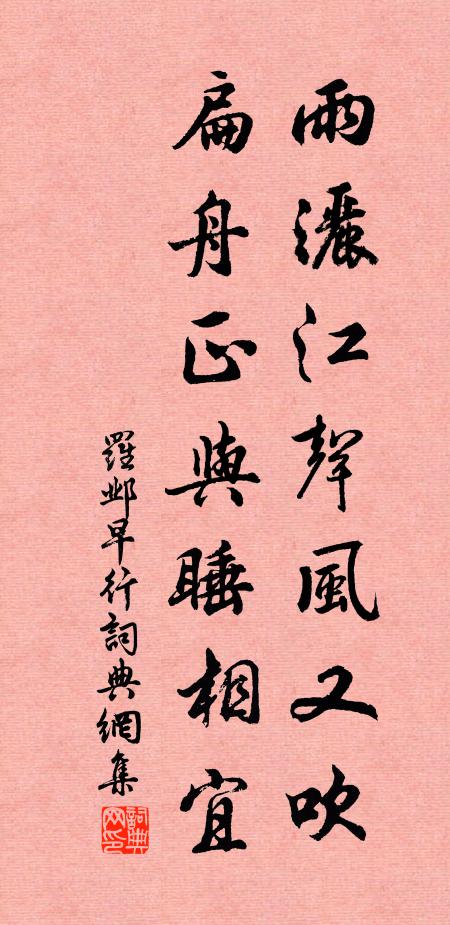 雨灑江聲風又吹
扁舟正與睡相宜
羅鄴早行詞典網集
詞典网印